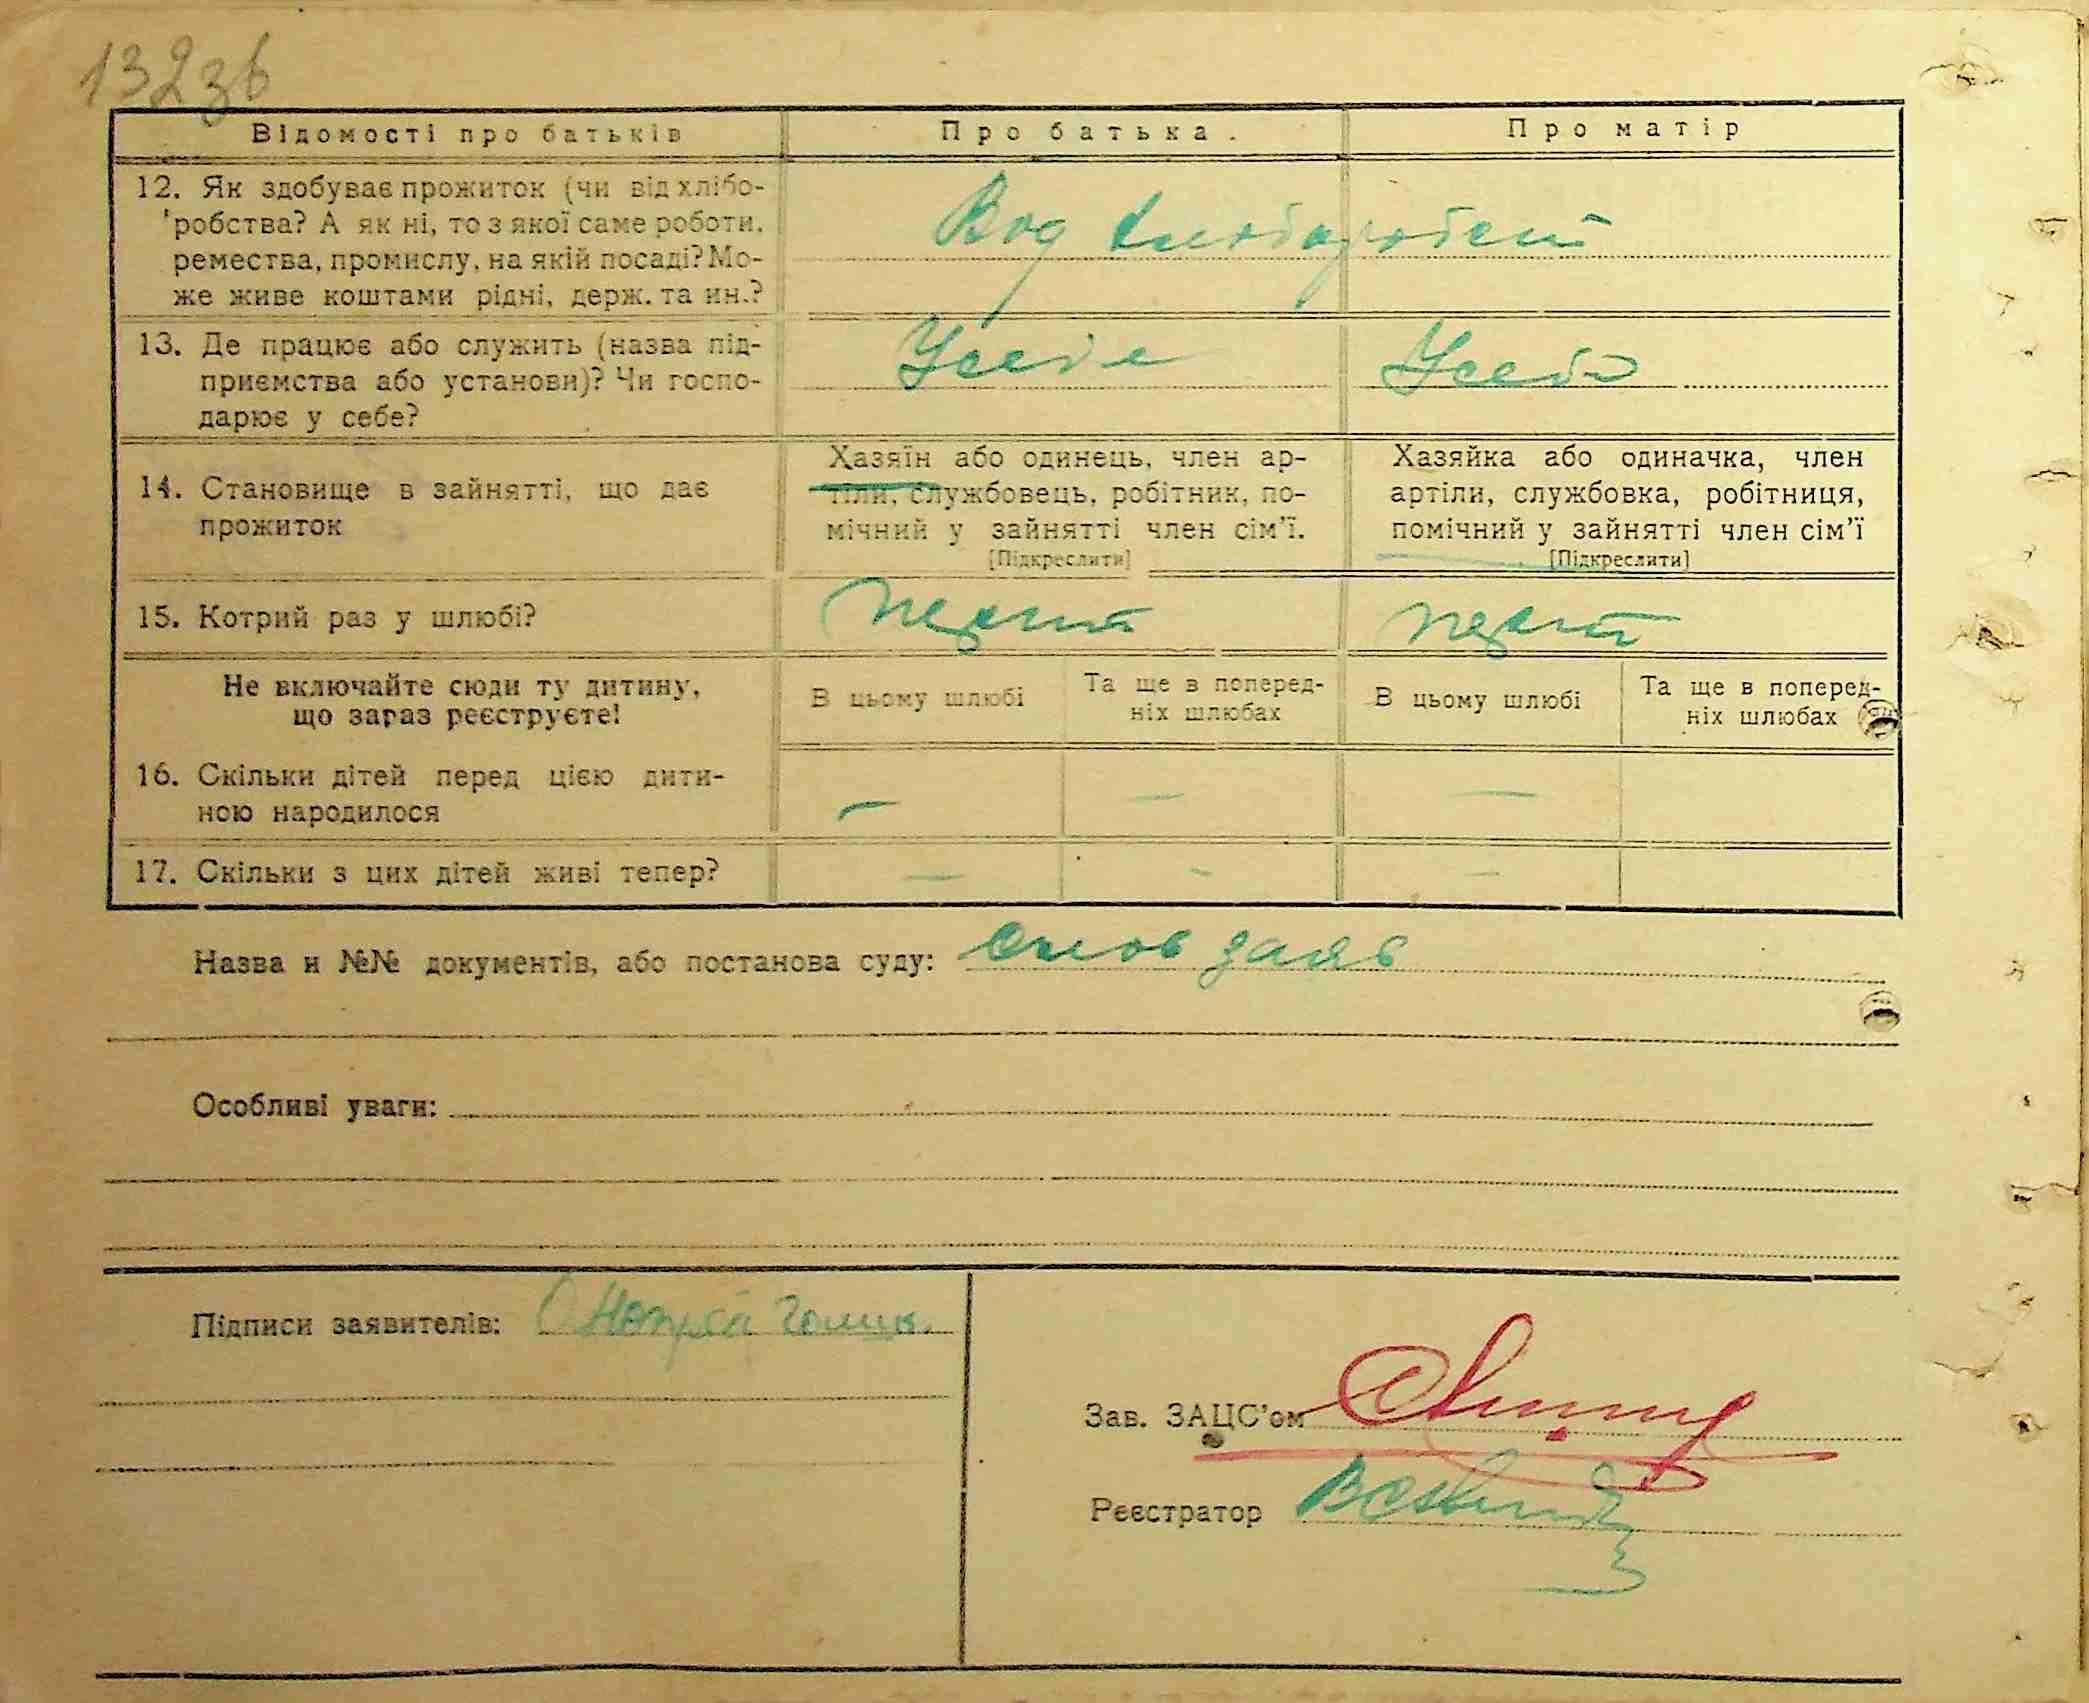 132зв
Відомості про батьків
Про батька.
Про матір
12. Як здобуває прожиток (чи від хлібо-
робства? А як ні, то з якої саме роботи,
ремества, промислу, на якій посаді? Мо-
же живе коштами рідні, держ. та ин.?
Вод
13. Де працює або служить (назва під-
приємства або установи)? Чи госпо-
дарює у себе?
Усебе
Усебе
14. Становище в зайнятті, що дає
прожиток
Хазяїн або одинець, член ар-
тіли, службовець, робітник, по-
мічний у зайнятті член сім'ї.
[Підкреслити]
Хазяйка або одиначка, член
артіли, службовка, робітниця,
помічний у зайнятті член сім'ї
[Підкреслити]
15. Котрий раз у шлюбі?
первий
первий
Не включайте сюди ту дитину,
що зараз реєструєте!
В цьому шлюбі
Та ще в поперед-
ніх шлюбах
В цьому шлюбі
Та ще в поперед-
ніх шлюбах
16. Скільки дітей перед цією дити-
ною народилося
– – –
17. Скільки з цих дітей живі тепер?
– – –
Назва и №№ документів, або постанова суду: слов заяв
Особливі уваги:
Підписи заявителів:
Зав. ЗАЦС'ом
Реєстратор